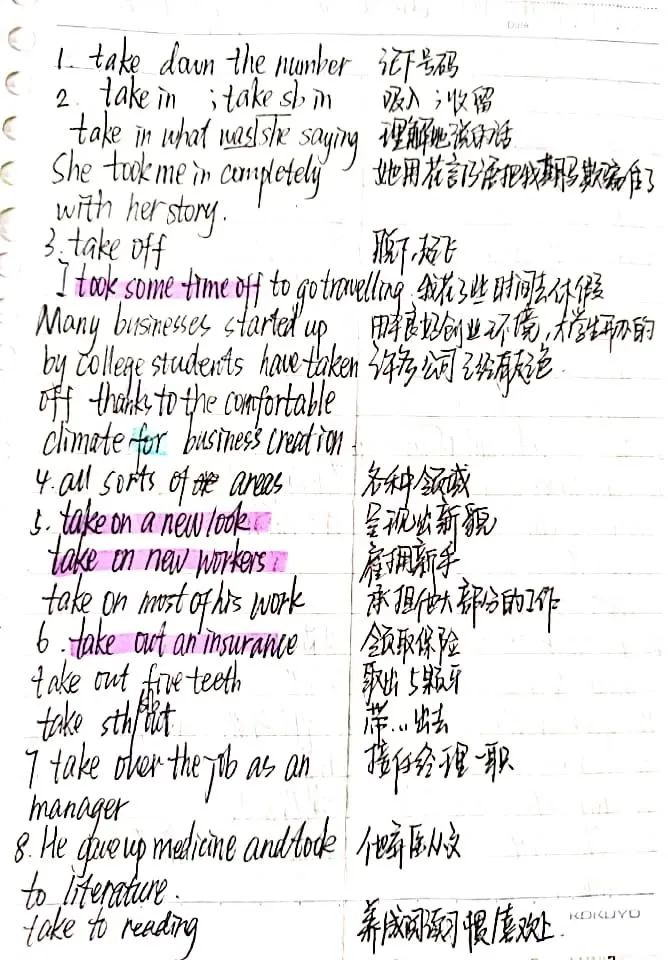 Date
1. take down the number 记下号码
2. take in ; take sb in 吸入 ; 收留
take in what was she saying 理解她说的话
She took me in completely 她用花言巧语把我欺骗住了
with her story.
3. take off 脱下、起飞
I took some time off to go travelling. 我花了些时间去休假
Many businesses started up 由于良好创业环境,大学生开办的
by college students have taken 许多公司已经有起色.
off thanks to the comfortable
climate for business creation.
4. all sorts of areas 各种领域
5. take on a new look 呈现出新貌
take on new workers 雇佣新手
take on most of his work 承担他大部分的工作
6. take out an insurance 领取保险
take out five teeth 取出5颗牙
take sth/sb out 带...出去
7 take over the job as an 接任经理一职
manager
8. He gave up medicine and took 他弃医从文
to literature.
take to reading 养成阅读习惯/喜欢上.
KOKUYO